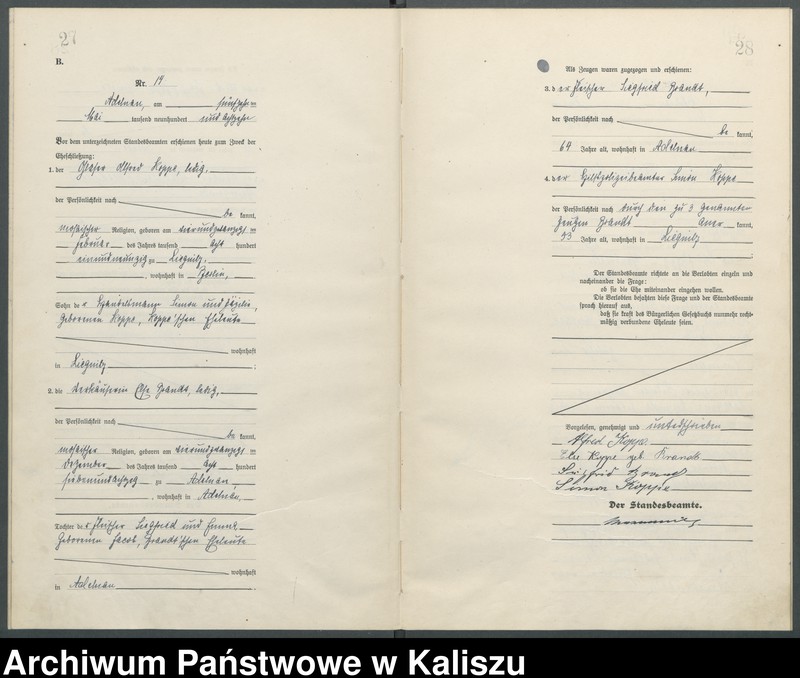 27
B.
Nr. 19
Adelnau, am fünfzehn ten
Mai tausend neunhundert und achtzehn
Vor dem unterzeichneten Standesbeamten erschienen heute zum Zweck der
Eheschließung:
1. der Glaser Alfred Koppe, ledig,
der Persönlichkeit nach
be kannt,
mosaischer Religion, geboren am vierundzwanzigsten
Februar des Jahres tausend acht hundert
einundneunzig zu Liegnitz,
, wohnhaft in Berlin,
Sohn des Handelsmann Simon und
geborenen Koppe, Koppe'schen Eheleute
wohnhaft
in Liegnitz
2. die Verkäuferin Else Brandt, ledig,
der Persönlichkeit nach
be kannt,
mosaischer Religion, geboren am vierundzwanzigsten
Dezember des Jahres tausend acht hundert
siebenundachtzig zu Adelnau,
, wohnhaft in Adelnau,
Tochter der Fleischer Siegfried und
geborenen Jacob, Brandt'schen Eheleute
wohnhaft
in Adelnau
28
Als Zeugen waren zugezogen und erschienen:
3. der Fleischer Siegfried Brandt,
der Persönlichkeit nach
be kannt,
64 Jahre alt, wohnhaft in Adelnau
4. der Simon Koppe
der Persönlichkeit nach durch den zu 3 genannten
Zeugen Brandt aner kannt,
53 Jahre alt, wohnhaft in Liegnitz
Der Standesbeamte richtete an die Verlobten einzeln und
nacheinander die Frage:
ob sie die Ehe miteinander eingehen wollen.
Die Verlobten bejahten diese Frage und der Standesbeamte
sprach hierauf aus,
daß sie kraft des Bürgerlichen Gesetzbuchs nunmehr recht-
mäßig verbundene Eheleute seien.
Vorgelesen, genehmigt und unterschrieben
Alfred Koppe
Else Koppe geb. Brandt
Siegfried Brandt
Simon Koppe
Der Standesbeamte.
Archiwum Państwowe w Kaliszu